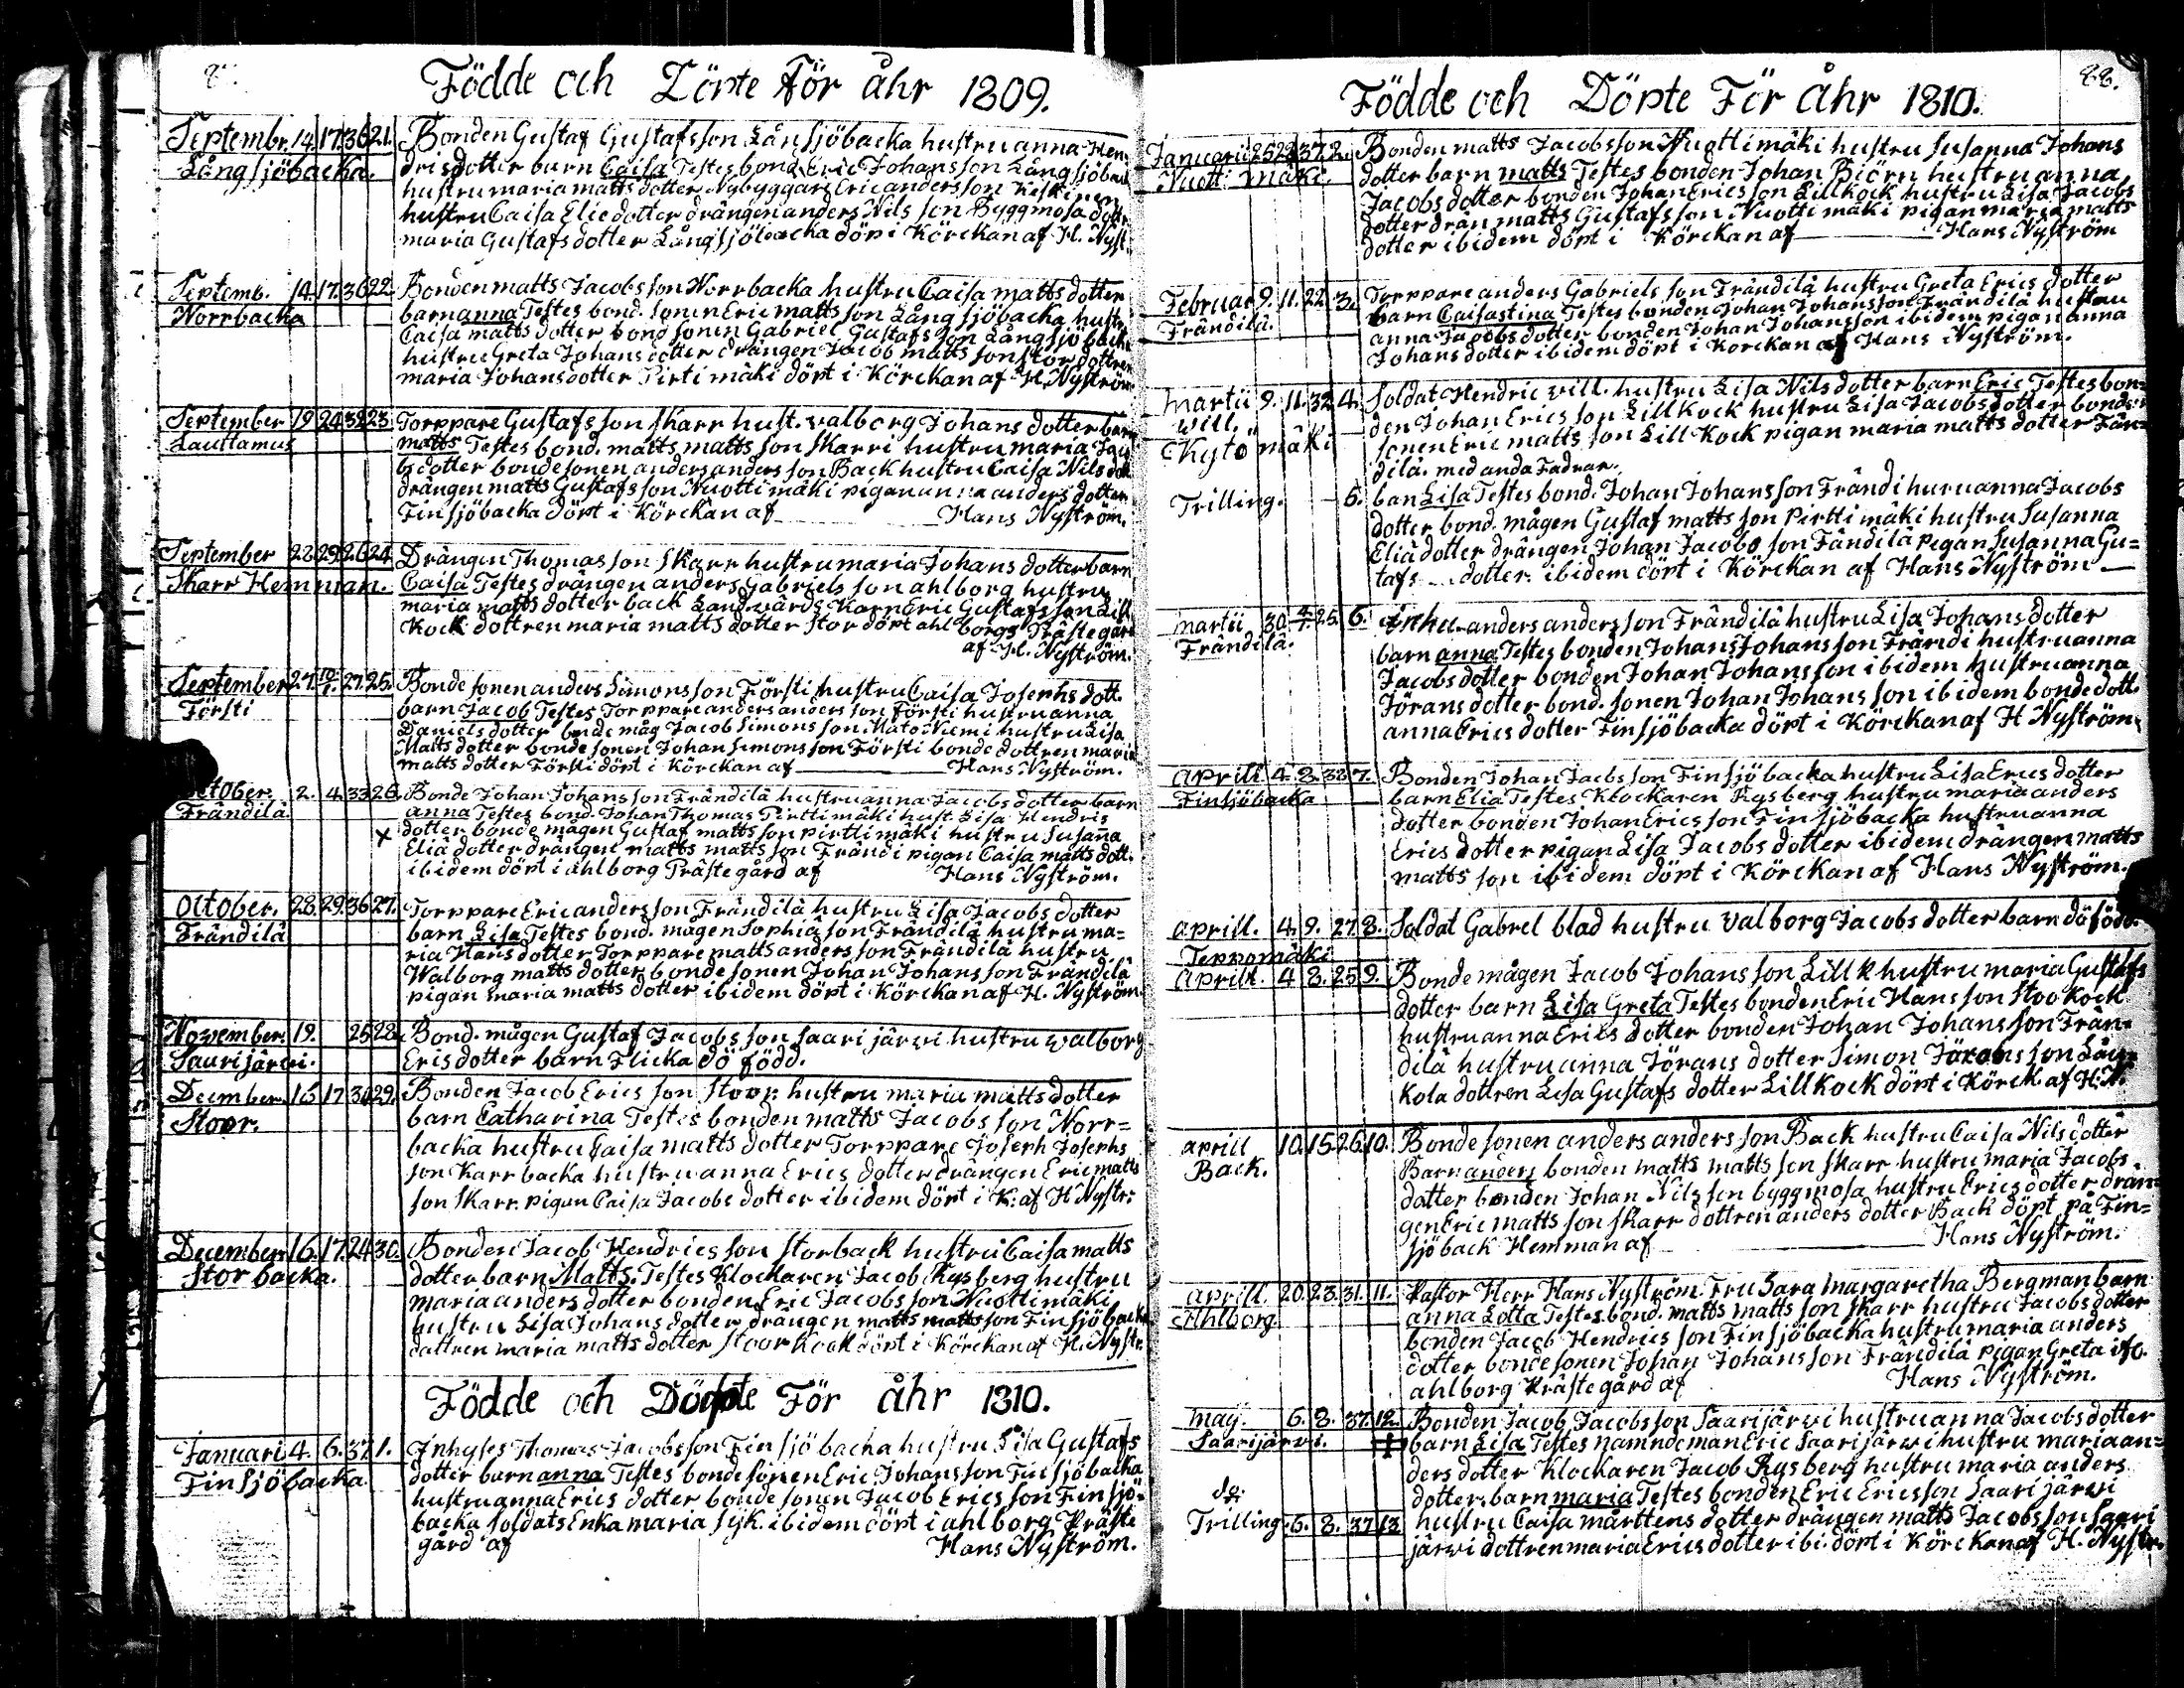 Födde och Döpte För åhr 1809.
Septembr. 14. 17. 36 21. Bonden Gustaf Gustafsson Långsjöbacka hustru anna Hen-
Långsjöbacka. drisdotter barn Caisa Testes bond. Eric Johansson Långsjöbac
hustru maria matts dotter Nybyggars Eric andersson Keskinen
hustru Caisa Elie dotter drängen anders Nils son Byggmosa dott
maria Gustafs dotter Långsjöbacka döp i Körckan af H. Nyst.
Septemb. 14. 17. 36 22. Bonden matts Jacobsson Norrbacka hustru Caisa matts dotter
Norrbacka barn anna Testes bond. sonen Eric matts son Långsjöbacka hustr
Caisa matts dotter bond sonen Gabriel Gustafs son Långsjöbacka
hustru Greta Johans dotter drängen Jacob matts son stor dottren
maria Johansdotter Pirtimäki döpt i Körckan af H. Nyström
September 19 24 32 23. Torppare Gustafsson skarr hust. valborg Johans dotter barn
Lauttamus matts Testes bond. matts matts son skarri hustru maria Jaco
bs dotter bondesonen anders anders son Back hustru Caisa Nils dott
drängen matts Gustafsson Nuottimäki pigan anna anders dotter
Finsjöbacka döpt i Körckan af Hans Nyström.
September 28 29 26 24 Drängen Thomasson Skarr hustru maria Johans dotter barn
Skarr Hemman. Caisa Testes drängen anders Gabriels son ahlborg hustru
maria matts dotter back Landvärds Karn Eric Gustafsson Lill
Kock dottren maria matts dotter stor döpt ahlborgs Prästegård
af H. Nyström.
September 27. 10/1. 27. 25. Bonde sonen anders Simonsson Försti hustru Caisa Josephs dott.
Försti barn Jacob Testes Torppare anders anders son Försti hustru anna
Daniels dotter bonde måg Jacob Simons son Mato Niemi hustru Lisa
Matts dotter bonde sonen Johan Simonsson Försti bonde dottren maria
matts dotter Försti döpt i Körckan af Hans Nyström.
October. 2. 4. 33 26. Bonde Johan Johansson Frändilä hustru anna Jacobs dotter barn
Frändilä anna Testes bond. Johan Thomas Pirttimäki hust. Lisa Hendris
x dotter bonde mågen Gustaf mattsson pirttimäki hustru Susana
Elia dotter drängen matts matts son Frändi pigan Caisa matts dott.
ibidem döpt i ahlborg Prästegård af Hans Nyström.
October. 28. 29. 36 27. Torppare Eric anders son Frändilä hustru Lisa Jacobs dotter
Frändilä barn Lisa Testes bond. mågen Sophia son Frändilä hustru ma=
ria Hans dotter Torppare matts anders son Frändilä hustru
Walborg matts dotter bonde sonen Johan Johans son Frändilä
pigan maria matts dotter ibidem döpt i Körckan af H. Nyström
November. 19. 25 28. Bond. mågen Gustaf Jacobsson Saarijärvi hustru walborg
Saarijärvi. Erisdotter barn Flicka dö född.
December. 15 17 34 29. Bonden Jacob Erics son stoor hustru maria matts dotter
Stoor. barn Catharina Testes bonden matts Jacobs son Norr=
backa hustru Caisa matts dotter Torppare Joseph Josephs
son Karrbacka hustru anna Erics dotter drängen Eric matts
son Skarr. pigan Caisa Jacobs dotter ibidem döpt i K. af H Nystr:
December 16. 17. 24 30. Bonden Jacob Hendricsson storback hustru Caisa matts
Storbacka. dotter barn Matts. Testes Klockaren Jacob Rysberg hustru
maria anders dotter bonden Eric Jacobsson Nuottimäki
hustru Lisa Johans dotter drängen matts mattsson Finsjöback
dottren maria matts dotter stoor Kock döpt i Körckan af H. Nystr.
Födde och Döpte För åhr 1810.
Januari 4. 6. 37. 1. Inhyses Thomas Jacobsson Finsjöbacka hustru Lisa Gustafs
Finsjöbacka. dotter barn anna Testes bonde sonen Eric Johansson Finsjöbacka
hustru anna Erics dotter bonde sonen Jacob Erics son Finsjö-
backa soldats Enka maria syk. ibidem döpt i ahlborg Präste
gård af Hans Nyström.
88.
Födde och Döpte För åhr 1810.
Januarii 25 28 37. 2. Bonden matts Jacobsson Nuottimäki hustru Susanna Johans
Nuotti mäki. dotter barn matts Testes bonden Johan Biörn hustru anna
Jacobs dotter bonden Johan Ericsson Lillkock hustru Lisa Jacobs
dotter drän matts Gustafsson Nuottimäki pigan maria matts
dotter ibidem döpt i Körckan af Hans Nyström
Februar 9. 11. 22. 3. Torppare anders Gabriels son Frändilä hustru Greta Erics dotter
Frändilä. barn Caisastina Testes bonden Johan Johansson Frändilä hustru
anna Jacobs dotter bonden Johan Johansson ibidem pigan anna
Johans dotter ibidem döpt i Körckan af Hans Nyström.
Martii 9. 11. 32. 4. Soldat Hendric vill. hustru Lisa Nils dotter barn Eric Testes bon=
will. den Johan Erics son Lillkock hustru Lisa Jacobs dotter bonde
Kytömäki sonen Eric matts son Lill Kock pigan maria matts dotter Frän=
dilä. med anda Fadrar.
Trilling. 5. ban Lisa Testes bond. Johan Johansson Frändi huru anna Jacobs
dotter bond. mågen Gustaf matts son Pirttimäki hustru Susanna
Elia dotter drängen Johan Jacobs son Fändilä pigan Susanna Gu=
tafs dotter. ibidem döpt i Körckan af Hans Nyström
Martii 30. 4/1. 25. 6. Inhu. anders anders son Frändilä hustru Lisa Johans dotter
Frändilä. barn anna Testes bonden Johans Johansson Frändi hustru anna
Jacobs dotter bonden Johan Johansson ibidem hustru anna
Jörans dotter bond. sonen Johan Johansson ibidem bonde dott.
anna Erics dotter Finsjöbacka döpt i Körckan af H Nyström
aprill 4. 8. 38 7. Bonden Johan Jacbsson Finsjöbacka hustru Lisa Erics dotter
Finsjöbacka barn Elia Testes Klockaren Rysberg hustru maria anders
dotter bonden Johan Erics son Finsjöbacka hustru anna
Erics dotter pigan Lisa Jacobs dotter ibidem drängen matts
matts son ibidem döpt i Körckan af Hans Nyström.
aprill. 4. 9. 27. 8. Soldat Gabrel blad hustru valborg Jacobs dotter barn döfödt.
Teppomäki
Aprill. 4 8. 25 9. Bonde mågen Jacob Johansson Lill k hustru maria Gustafs
dotter barn Lisa Greta Testes bonden Eric Hansson stoo Kock
hustru anna Erics dotter bonden Johan Johansson Frän-
dilä hustru anna Jörans dotter Simon Jörans son Lau
kola dottren Lisa Gustafs dotter Lillkock döpt i Körck. af H. N.
aprill 10. 15. 26. 10. Bonde sonen anders anders son Back hustru Caisa Nils dotter
Back. Barn anders bonden matts matts son skarr hustru maria Jacobs
dotter bonden Johan Nils son byggmosa hustru Erics dotter drän
gen Eric matts son skarr dottren anders dotter Back döpt på Fin=
sjöback Hemman af Hans Nyström.
aprill. 20. 23. 31. 11. Pastor Herr Hans Nyström. Fru Sara margaretha Bergman barn
Ahlborg. anna Lotta Testes bond. matts matts son skarr hustru Jacobs dotter
bonden Jacob Hendrics son Finsjöbacka hustru maria anders
dotter bonde sonen Johan Johansson Frändilä pigan Greta
ahlborg Prästegård af Hans Nyström.
May. 6. 8. 37. 12. Bonden Jacob Jacobsson Saarijärvi hustru anna Jacobs dotter
Saarijärvi. barn Lisa Testes namndeman Eric Saarijärvi hustru maria an=
ders dotter Klockaren Jacob Rysberg hustru maria anders
do: dotter, barn maria Testes bonden Eric Ericsson Saarijärvi
Trilling. 6. 8. 37 13. hustru Caisa mårttens dotter drängen matts Jacobsson saari
järvi dottren maria Erics dotter ibi. döpt i Körckan af H. Nystr.